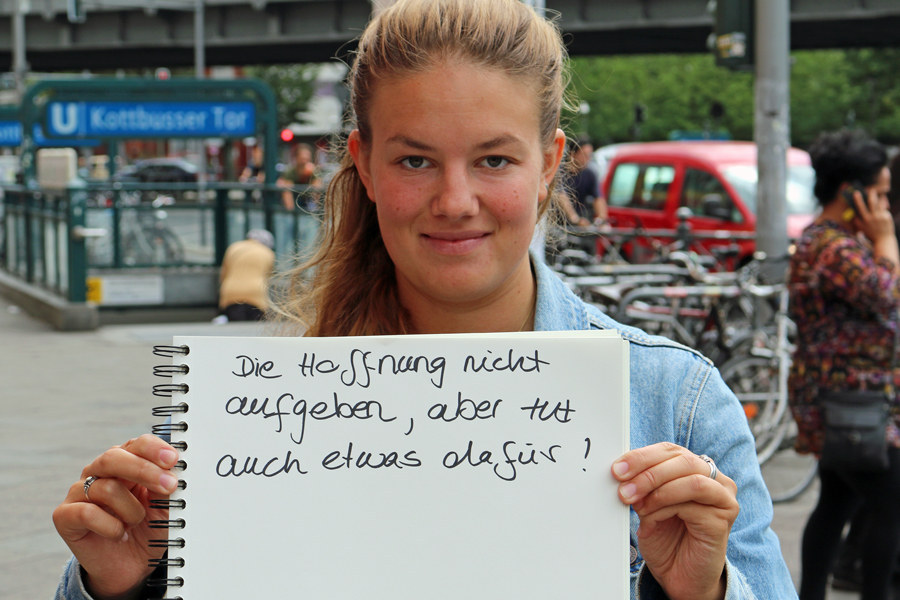 U Kottbusser Tor
Die Hoffnung nicht
aufgeben, aber tut
auch etwas dafür!